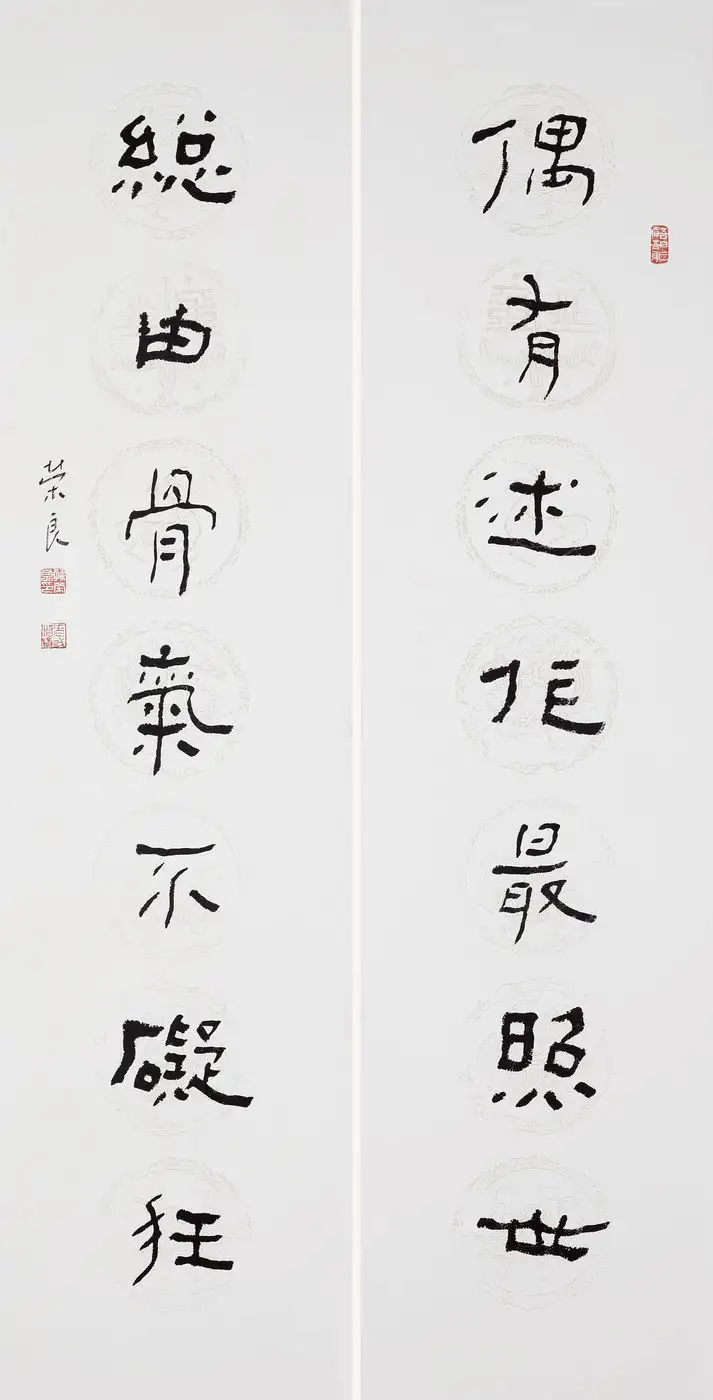 偶有述作最照世
総由骨氣不礙狂
榮良